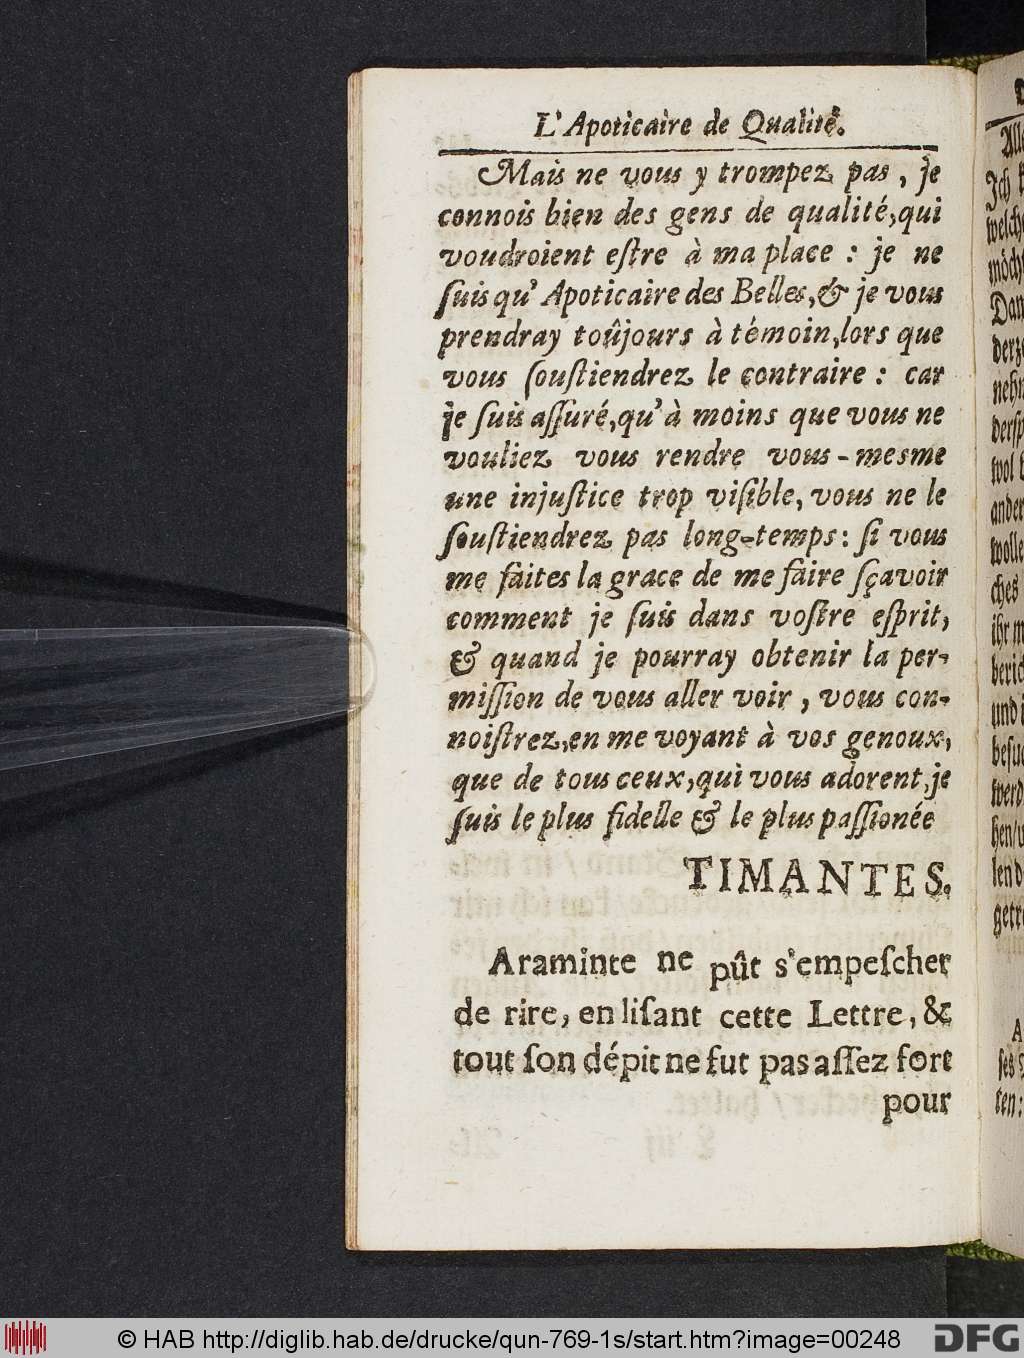 L'Apoticaire de Qualité.
Mais ne vous y trompez pas, je
connois bien des gens de qualité, qui
voudroient eſtre à ma place : je ne
ſuis qu' Apoticaire des Belles, & je vous
prendray toûjours à témoin, lors que
vous ſouſtiendrez le contraire : car
je ſuis aſſuré, qu'à moins que vous ne
vouliez vous rendre vous-mesme
une injuſtice trop viſible, vous ne le
ſouſtiendrez pas long-temps : ſi vous
me faites la grace de me faire ſçavoir
comment je ſuis dans voſtre eſprit,
& quand je pourray obtenir la per-
miſſion de vous aller voir, vous con-
noiſtrez, en me voyant à vos genoux,
que de tous ceux, qui vous adorent, je
ſuis le plus fidelle & le plus paſſionée
TIMANTES.
Araminte ne pût s'empeſcher
de rire, en liſant cette Lettre, &
tout ſon dépit ne fut pas aſſez fort
pour
Ich
Dan
wol
und
A
ten:
© HAB http://diglib.hab.de/drucke/qun-769-1s/start.htm?image=00248
DFG